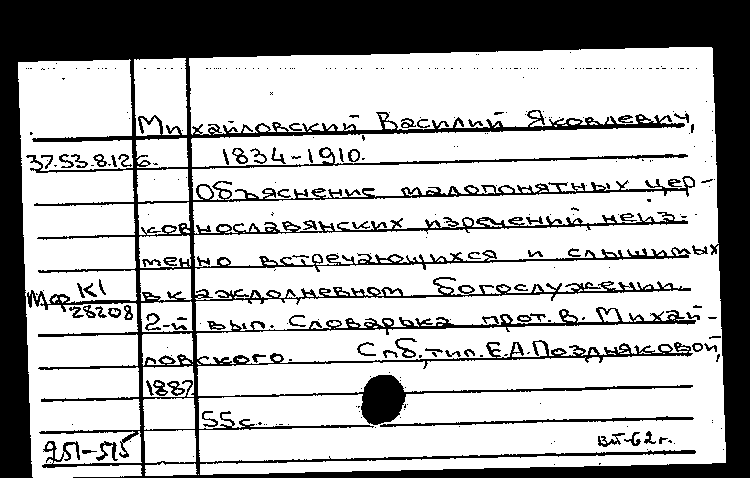 Михайловский, Василий Яковлевич,
37.53.8.126. 1834-1910.
Объяснение малопонятных цер-
ковнославянских изречений, неиз-
менно встречающихся и слышимых
Мф К1/28208 в каждодневном богослужении.
2-й вып. Словарька прот. В. Михай-
ловского. Спб, тип. Е.А. Поздняковой,
1887
55 с.
251-515 ВТ-62 г.